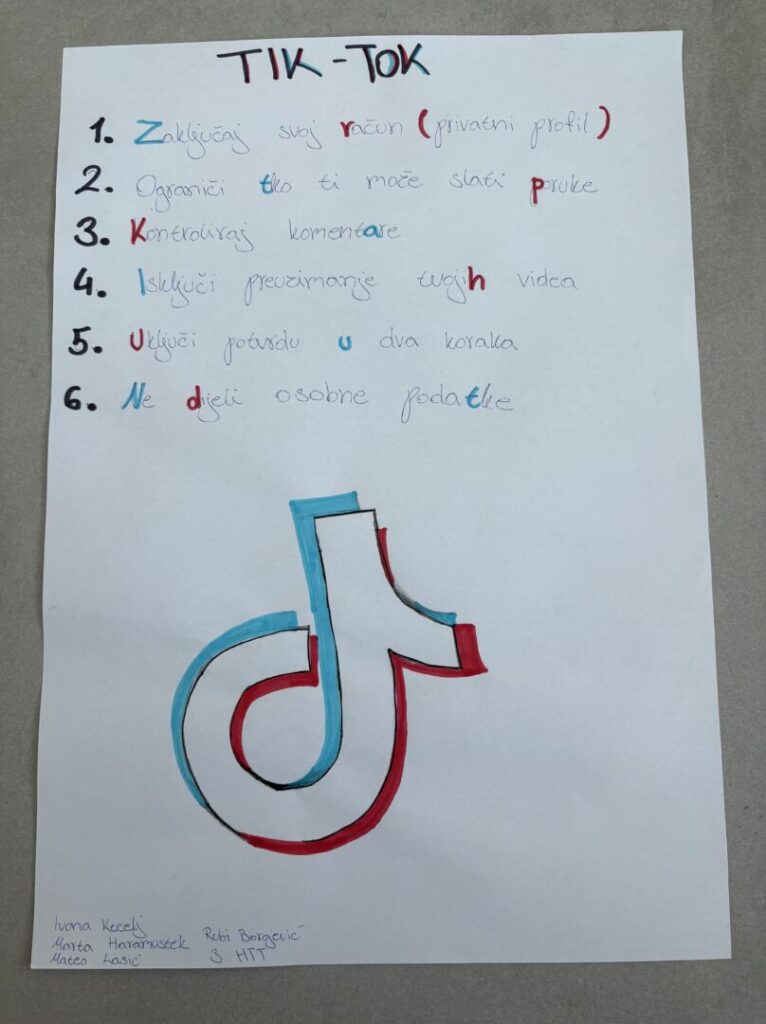 TIK-TOK
1. Zaključaj svoj račun (privatni profil)
2. Ograniči tko ti može slati poruke
3. Kontroliraj komentare
4. Isključi preuzimanje tvojih videa
5. Uključi potvrdu u dva koraka
6. Ne dijeli osobne podatke
Ivona Kecelj
Marta Haramustek Rubi Borojević
Mateo Lasić 3. HTT